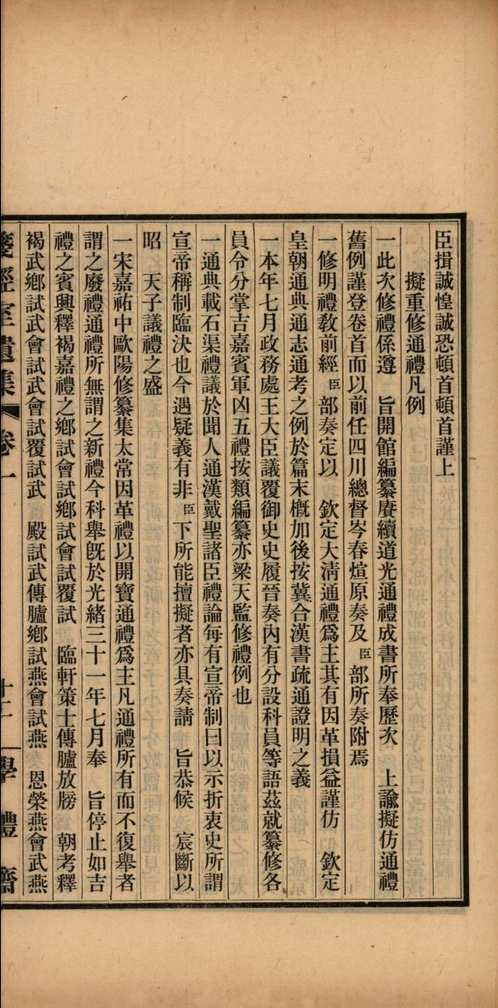 臣揖誠惶誠恐頓首頓首謹上
擬重修通禮凡例
一此次修禮係遵　旨開館編纂賡續道光通禮成書所奉歷次　上諭擬仿通禮
舊例謹登卷首而以前任四川總督岑春煊原奏及臣部所奏附焉
一修明禮教前經臣部奏定以　欽定大清通禮爲主其有因革損益謹仿　欽定
皇朝通典通志通考之例於篇末概加後按冀合漢書疏通證明之義
一本年七月政務處王大臣議覆御史史履晉奏內有分設科員等語茲就纂修各
員令分掌吉嘉賓軍凶五禮按類編纂亦梁天監修禮例也
一通典載石渠禮議於聞人通漢戴聖諸臣禮論每有宣帝制曰以示折衷史所謂
宣帝稱制臨決也今遇疑義有非臣下所能擅擬者亦具奏請　旨恭候　宸斷以
昭　天子議禮之盛
一宋嘉祐中歐陽修纂集太常因革禮以開寶通禮爲主凡通禮所有而不復舉者
謂之廢禮通禮所無謂之新禮今科舉旣於光緒三十一年七月奉　旨停止如吉
禮之賓興釋褐嘉禮之鄉試會試鄉試會試覆試　臨軒策士傳臚放牓　朝考釋
褐武鄉試武會試武會試覆試武　殿試武傳臚鄉試燕會試燕　恩榮燕會武燕
箋經室遺集　卷一　十二　學禮齋